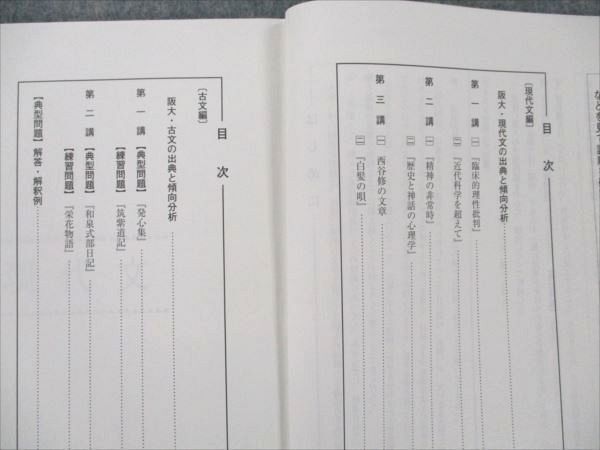 目次
〔現代文編〕
阪大・現代文の出典と傾向分析
第一講 ㈠『臨床的理性批判』
㈡『近代科学を超えて』
第二講 ㈠『精神の非常時』
㈡『歴史と神話の心理学』
第三講 ㈠ 西谷修の文章
㈡『白髪の唄』
目次
〔古文編〕
阪大・古文の出典と傾向分析
第一講 【典型問題】『発心集』
【練習問題】『筑紫道記』
第二講 【典型問題】『和泉式部日記』
【練習問題】『栄花物語』
【典型問題】解答・解釈例